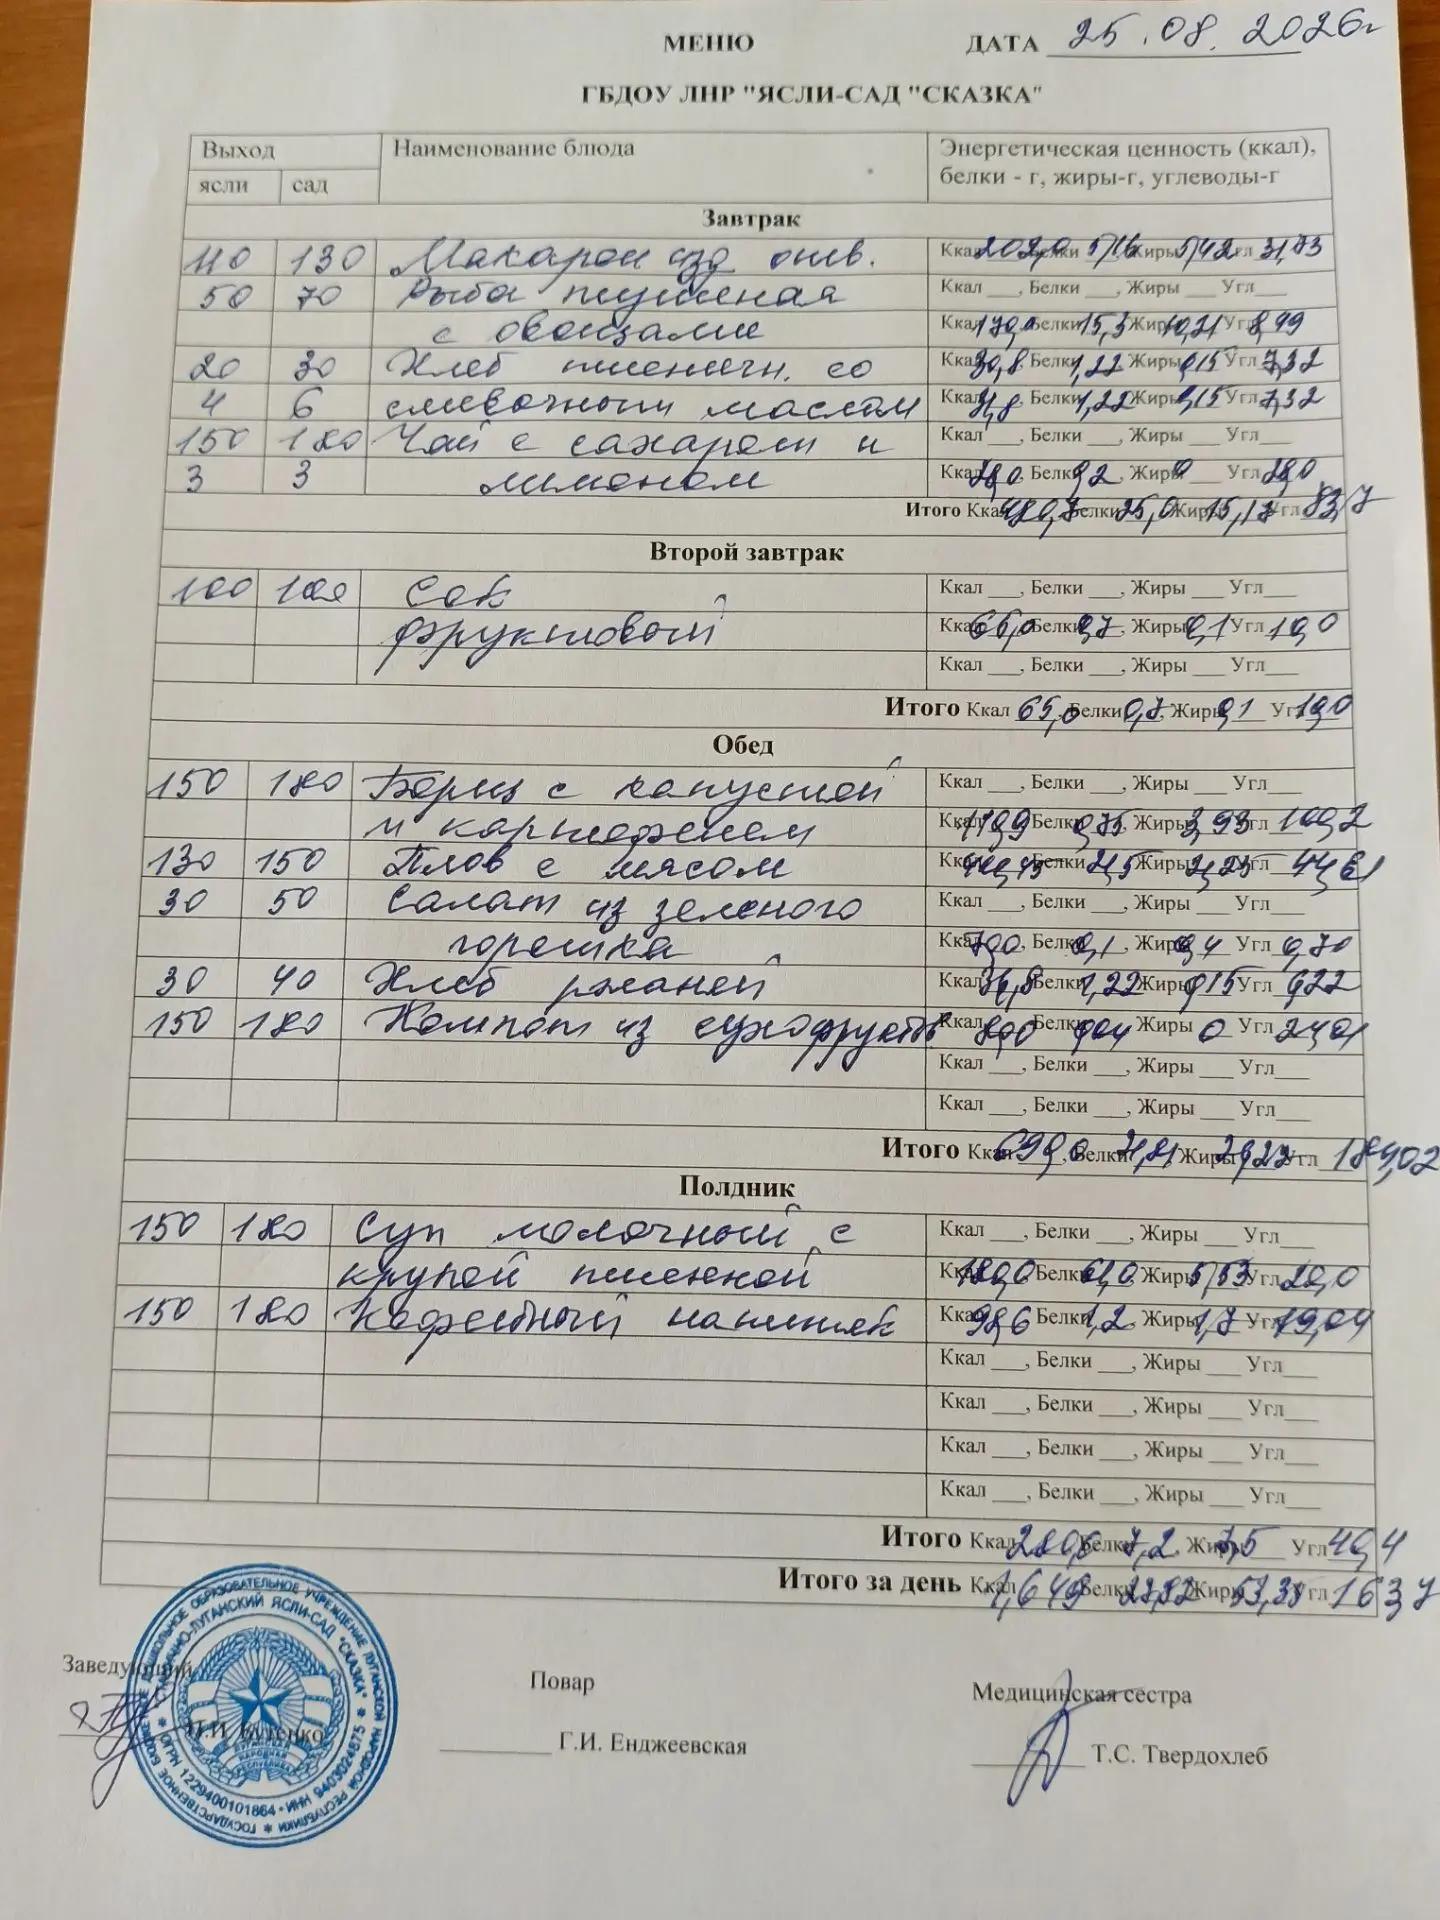 МЕНЮ ДАТА 25.08.2026г
ГБДОУ ЛНР "ЯСЛИ-САД "СКАЗКА"
Выход Наименование блюда Энергетическая ценность (ккал),
ясли сад белки - г, жиры-г, углеводы-г
Завтрак
110 130 Макарон изд отв. Ккал 202,0 Белки 5,16 Жиры 5,42 Угл 31,73
50 70 Рыба тушеная Ккал ___, Белки ___, Жиры ___ Угл___
с овощами Ккал 170,0 Белки 15,3 Жиры 10,21 Угл 8,99
20 30 Хлеб пшеничн. со Ккал Белки 1,22 Жиры 0,15 Угл 7,32
4 6 сливочным маслом Ккал Белки 1,22 Жиры 0,15 Угл 7,32
150 180 Чай с сахаром и Ккал ___, Белки ___, Жиры ___ Угл___
3 3 лимоном Ккал Белки 0,2 Жиры 0 Угл
Итого Ккал Белки 25,0 Жиры 15,17 Угл 83,7
Второй завтрак
100 100 Сок Ккал ___, Белки ___, Жиры ___ Угл___
фруктовый Ккал 65,0 Белки 0,7 Жиры 0,1 Угл 10,0
Ккал ___, Белки ___, Жиры ___ Угл___
Итого Ккал 65,0, Белки 0,7, Жиры 0,1 Угл 10,0
Обед
150 180 Борщ с капустой Ккал ___, Белки ___, Жиры ___ Угл___
и картофелем Ккал Белки Жиры 3,93 Угл 100,2
130 150 Плов с мясом Ккал Белки Жиры Угл 44,61
30 50 Салат из зеленого Ккал ___, Белки ___, Жиры ___ Угл___
горошка Ккал Белки 0,1 Жиры 0,4 Угл 0,70
30 40 Хлеб ржаной Ккал Белки 1,22 Жиры 0,15 Угл
150 180 Компот из сухофруктов Ккал Белки 0,04 Жиры 0 Угл
Ккал ___, Белки ___, Жиры ___ Угл___
Ккал ___, Белки ___, Жиры ___ Угл___
Итого Ккал Белки Жиры Угл
Полдник
150 180 Суп молочный с Ккал ___, Белки ___, Жиры ___ Угл___
крупой пшенной Ккал Белки Жиры 5,53 Угл 20,0
150 180 Кофейный напиток Ккал 98,6 Белки 1,2 Жиры 1,7 Угл 19,04
Ккал ___, Белки ___, Жиры ___ Угл___
Ккал ___, Белки ___, Жиры ___ Угл___
Ккал ___, Белки ___, Жиры ___ Угл___
Ккал ___, Белки ___, Жиры ___ Угл___
Итого Ккал Белки 7,2, Жиры Угл 40,4
Итого за день Ккал 1,649 Белки Жиры 53,38 Угл 163,7
Заведующий Повар Медицинская сестра
Г.И. Енджеевская Т.С. Твердохлеб
ГОСУДАРСТВЕННОЕ БЮДЖЕТНОЕ ДОШКОЛЬНОЕ ОБРАЗОВАТЕЛЬНОЕ УЧРЕЖДЕНИЕ ЛУГАНСКОЙ НАРОДНОЙ РЕСПУБЛИКИ
ЯСЛИ-САД "СКАЗКА"
1229400101864 • ИНН 9403024875